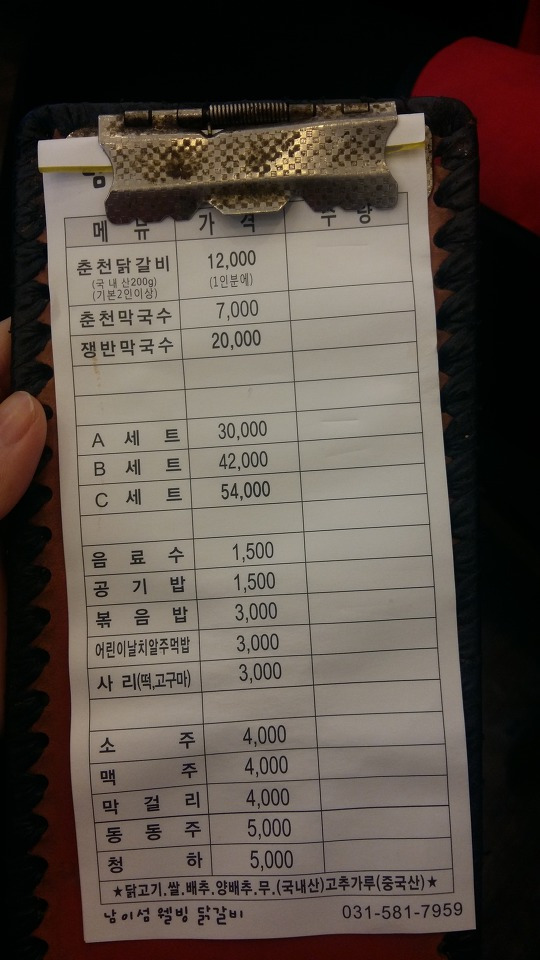 메 뉴 가 격 수 량
춘천닭갈비 12,000
(국내산200g) (1인분에)
(기본2인이상)
춘천막국수 7,000
쟁반막국수 20,000
A 세 트 30,000
B 세 트 42,000
C 세 트 54,000
음 료 수 1,500
공 기 밥 1,500
볶 음 밥 3,000
어린이날치알주먹밥 3,000
사 리(떡,고구마) 3,000
소 주 4,000
맥 주 4,000
막 걸 리 4,000
동 동 주 5,000
청 하 5,000
★닭고기.쌀.배추.양배추.무.(국내산)고추가루(중국산)★
남이섬 웰빙 닭갈비 031-581-7959